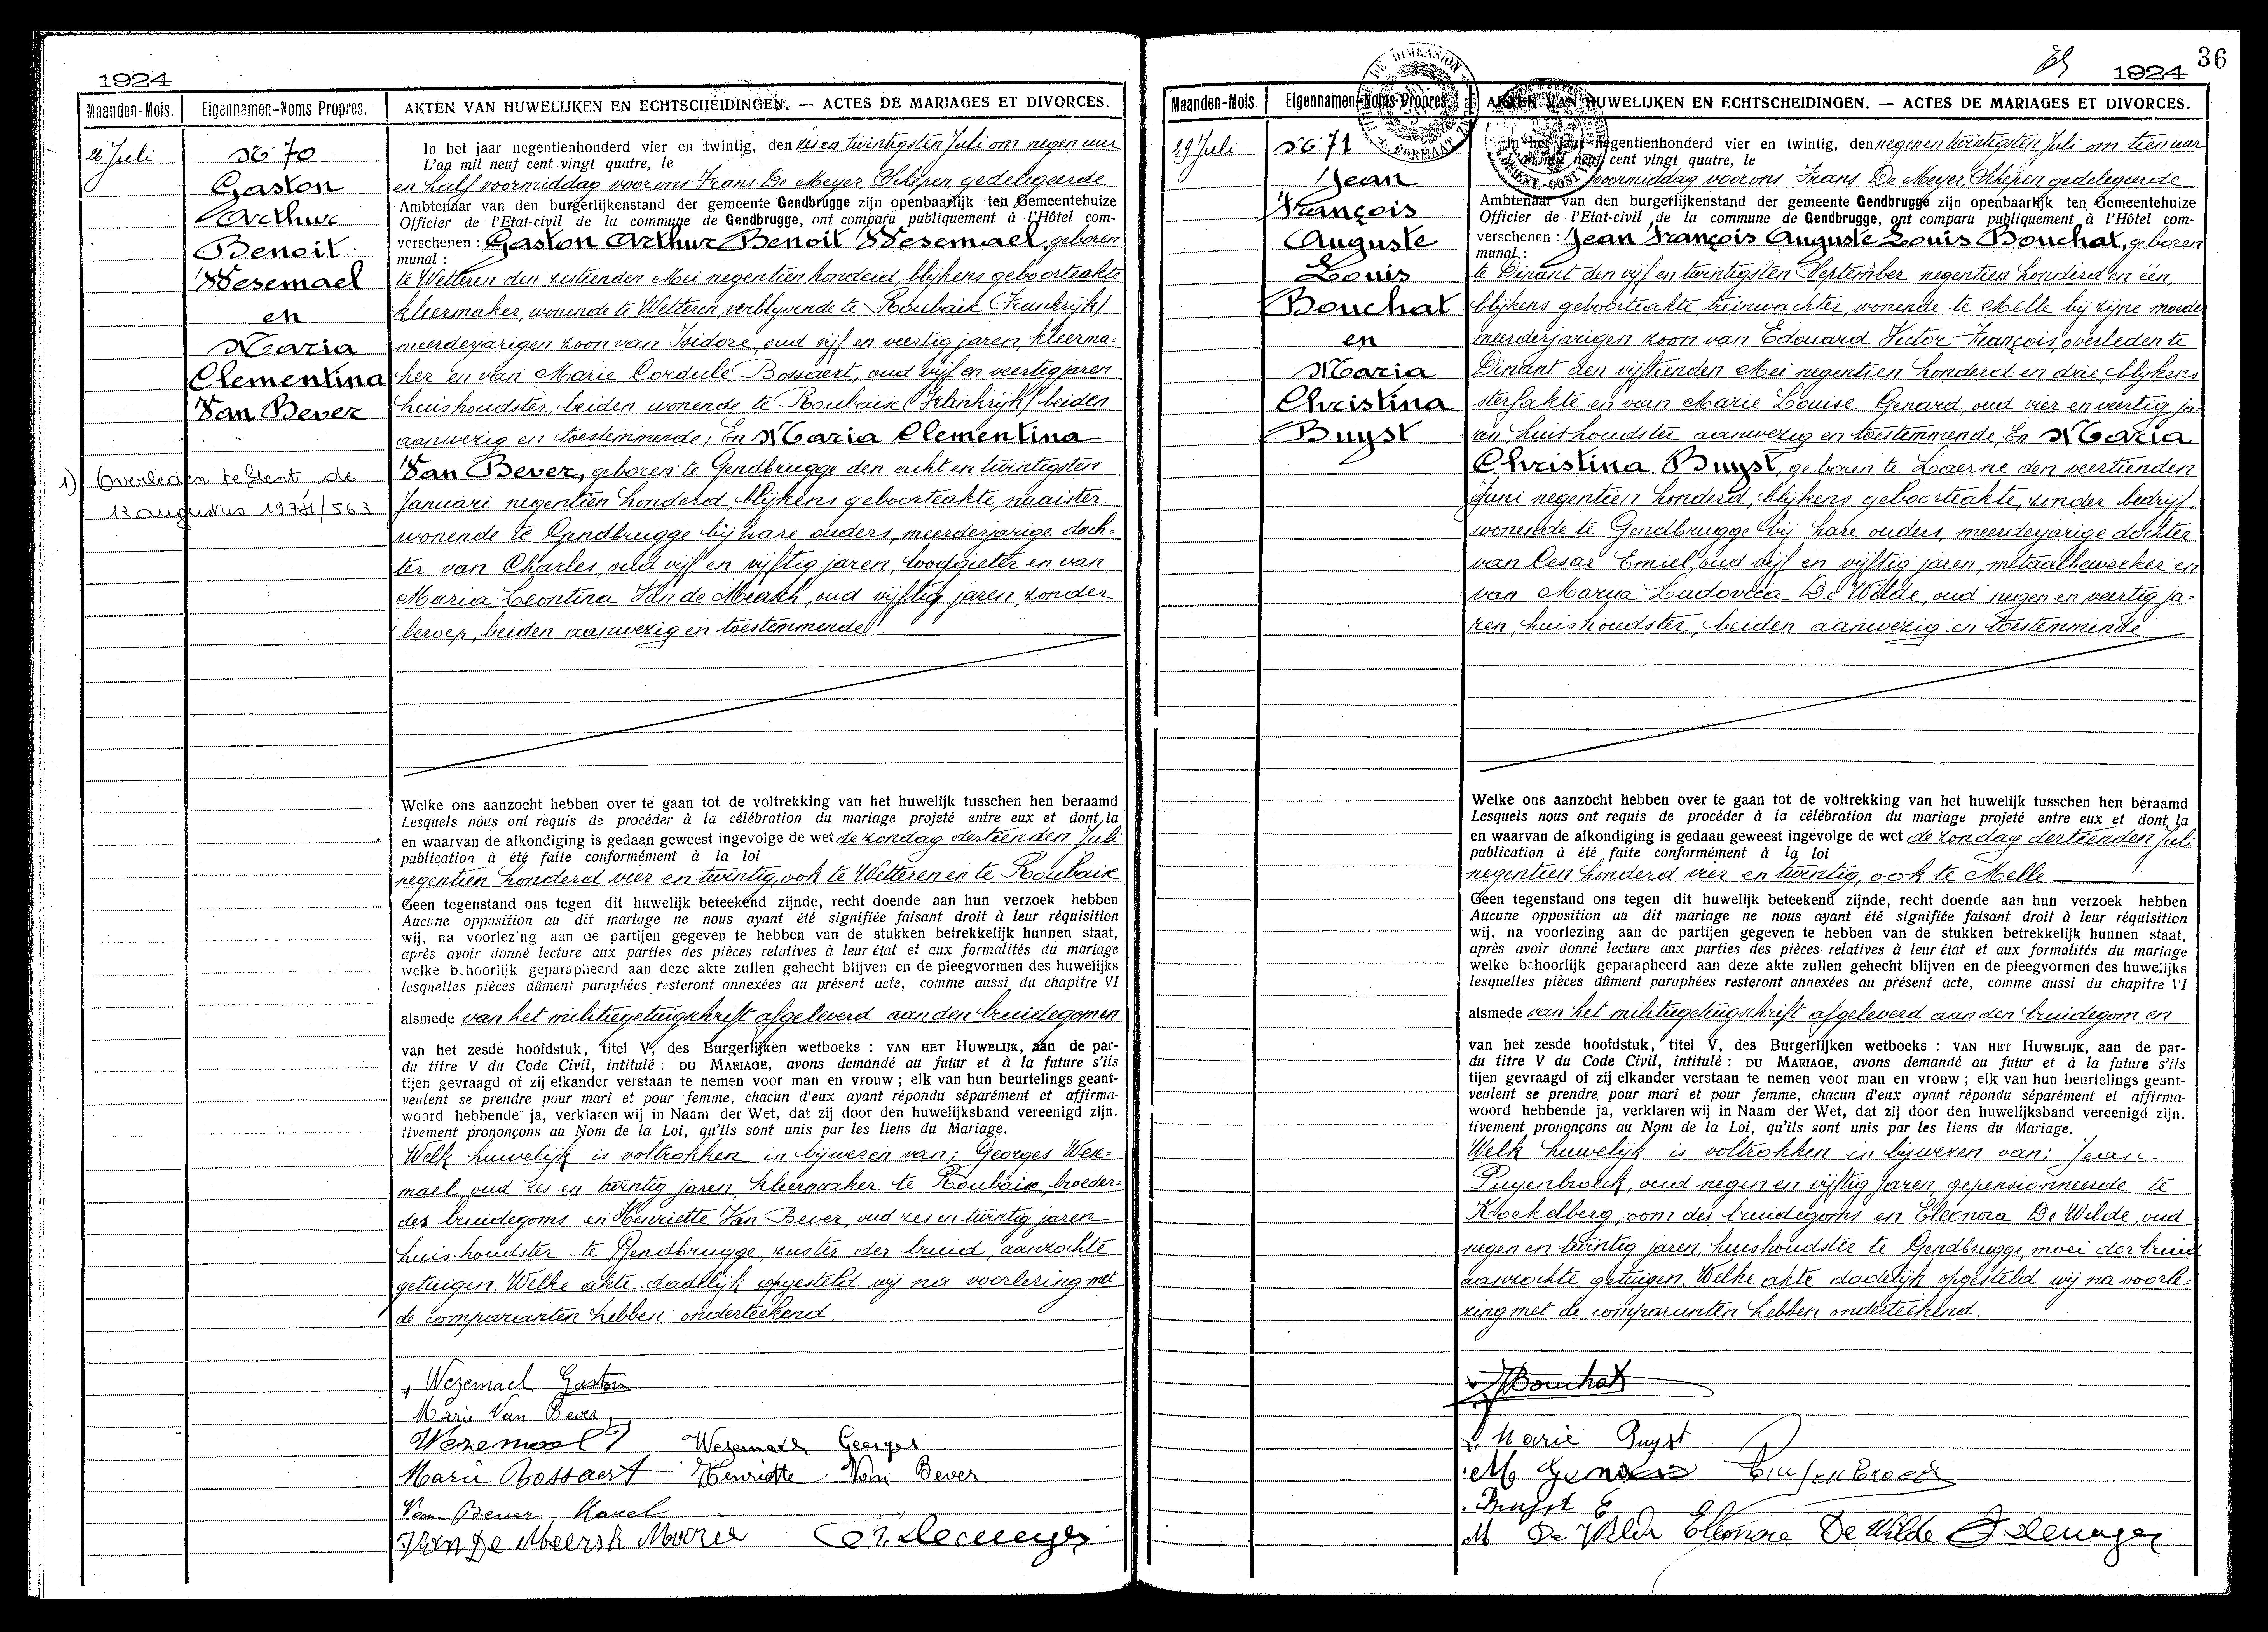 1924
Maanden-Mois. Eigennamen-Noms Propres. AKTEN VAN HUWELIJKEN EN ECHTSCHEIDINGEN. — ACTES DE MARIAGES ET DIVORCES.
26 Juli
No 70
Gaston
Arthur
Benoit
Wesemael
en
Maria
Clementina
Van Bever
1) Overleden te Gent de
13 augustus 1974/563
In het jaar negentienhonderd vier en twintig, den zes en twintigsten Juli om negen uur
L'an mil neuf cent vingt quatre, le
en half voormiddag voor ons Frans De Meyer Schepen gedelegeerde
Ambtenaar van den burgerlijkenstand der gemeente Gendbrugge zijn openbaarlijk ten Gemeentehuize
Officier de l'Etat-civil de la commune de Gendbrugge, ont comparu publiquement à l'Hôtel com-
verschenen : Gaston Arthur Benoit Wesemael, geboren
munal :
te Wetteren den zestienden Mei negentien honderd, blijkens geboorteakte
kleermaker, wonende te Wetteren, verblijvende te Roubaix (Frankrijk)
meerderjarigen zoon van Isidore, oud vijf en veertig jaren, kleerma-
ker en van Marie Cordule Bossaert, oud vijf en veertig jaren
huishoudster, beiden wonende te Roubaix (Frankrijk) beiden
aanwezig en toestemmende; En Maria Clementina
Van Bever, geboren te Gendbrugge den acht en twintigsten
Januari negentien honderd, blijkens geboorteakte, naaister
wonende te Gendbrugge bij hare ouders, meerderjarige doch-
ter van Charles, oud vijf en vijftig jaren, loodgieter en van
Maria Leontina Van de Meersh, oud vijftig jaren, zonder
beroep, beiden aanwezig en toestemmende
Welke ons aanzocht hebben over te gaan tot de voltrekking van het huwelijk tusschen hen beraamd
Lesquels nous ont requis de procéder à la célébration du mariage projeté entre eux et dont la
en waarvan de afkondiging is gedaan geweest ingevolge de wet de zondag dertienden Juli
publication à été faite conformément à la loi
negentien honderd vier en twintig, ook te Wetteren en te Roubaix
Geen tegenstand ons tegen dit huwelijk beteekend zijnde, recht doende aan hun verzoek hebben
Aucune opposition au dit mariage ne nous ayant été signifiée faisant droit à leur réquisition
wij, na voorlezing aan de partijen gegeven te hebben van de stukken betrekkelijk hunnen staat,
après avoir donné lecture aux parties des pièces relatives à leur état et aux formalités du mariage
welke behoorlijk geparapheerd aan deze akte zullen gehecht blijven en de pleegvormen des huwelijks
lesquelles pièces dûment paraphées resteront annexées au présent acte, comme aussi du chapitre VI
alsmede van het militiegetuigschrift afgeleverd aan den bruidegom en
van het zesde hoofdstuk, titel V, des Burgerlijken wetboeks : VAN HET HUWELIJK, aan de par-
du titre V du Code Civil, intitulé : DU MARIAGE, avons demandé au futur et à la future s'ils
tijen gevraagd of zij elkander verstaan te nemen voor man en vrouw ; elk van hun beurtelings geant-
veulent se prendre pour mari et pour femme, chacun d'eux ayant répondu séparément et affirma-
woord hebbende ja, verklaren wij in Naam der Wet, dat zij door den huwelijksband vereenigd zijn.
tivement prononçons au Nom de la Loi, qu'ils sont unis par les liens du Mariage.
Welk huwelijk is voltrokken in bijwezen van; Georges Wese-
mael, oud zes en twintig jaren, kleermaker te Roubaix, broeder
des bruidegoms en Henriette Van Bever, oud zes en twintig jaren
huishoudster te Gendbrugge, zuster der bruid, aanzochte
getuigen. Welke akte dadelijk opgesteld wij na voorlezing met
de comparanten hebben onderteekend.
Wezemael Gaston
Marie Van Bever
Wezemael Wezemael Georges
Marie Bossaert Henriette Van Bever
Van Bever Karel
Van De Meersh Marie
36
1924
Maanden-Mois. Eigennamen-Noms Propres. AKTEN VAN HUWELIJKEN EN ECHTSCHEIDINGEN. — ACTES DE MARIAGES ET DIVORCES.
29 Juli
No 71
Jean
François
Auguste
Louis
Bouchat
en
Maria
Christina
Buyst
In het jaar negentienhonderd vier en twintig, den negen en twintigsten Juli om tien uur
L'an mil neuf cent vingt quatre, le
voormiddag voor ons Frans De Meyer, Schepen gedelegeerde
Ambtenaar van den burgerlijkenstand der gemeente Gendbrugge zijn openbaarlijk ten Gemeentehuize
Officier de l'Etat-civil de la commune de Gendbrugge, ont comparu publiquement à l'Hôtel com-
verschenen : Jean François Auguste Louis Bouchat, geboren
munal :
te Dinant den vijf en twintigsten September negentien honderd en één,
blijkens geboorteakte, treinwachter, wonende te Melle bij zijne moeder
meerderjarigen zoon van Edouard Victor François, overleden te
Dinant den vijftienden Mei negentien honderd en drie, blijkens
sterfakte en van Marie Louise Genard, oud vier en veertig ja-
ren, huishoudster aanwezig en toestemmende, En Maria
Christina Buyst, geboren te Laerne den veertienden
Juni negentien honderd, blijkens geboorteakte, zonder bedrijf,
wonende te Gendbrugge bij hare ouders, meerderjarige dochter
van Cesar Emiel, oud vijf en vijftig jaren, metaalbewerker en
van Maria Ludovica De Wilde, oud negen en veertig ja-
ren, huishoudster, beiden aanwezig en toestemmende
Welke ons aanzocht hebben over te gaan tot de voltrekking van het huwelijk tusschen hen beraamd
Lesquels nous ont requis de procéder à la célébration du mariage projeté entre eux et dont la
en waarvan de afkondiging is gedaan geweest ingevolge de wet de zondag dertienden Juli
publication à été faite conformément à la loi
negentien honderd vier en twintig, ook te Melle
Geen tegenstand ons tegen dit huwelijk beteekend zijnde, recht doende aan hun verzoek hebben
Aucune opposition au dit mariage ne nous ayant été signifiée faisant droit à leur réquisition
wij, na voorlezing aan de partijen gegeven te hebben van de stukken betrekkelijk hunnen staat,
après avoir donné lecture aux parties des pièces relatives à leur état et aux formalités du mariage
welke behoorlijk geparapheerd aan deze akte zullen gehecht blijven en de pleegvormen des huwelijks
lesquelles pièces dûment paraphées resteront annexées au présent acte, comme aussi du chapitre VI
alsmede van het militiegetuigschrift afgeleverd aan den bruidegom en
van het zesde hoofdstuk, titel V, des Burgerlijken wetboeks : VAN HET HUWELIJK, aan de par-
du titre V du Code Civil, intitulé : DU MARIAGE, avons demandé au futur et à la future s'ils
tijen gevraagd of zij elkander verstaan te nemen voor man en vrouw ; elk van hun beurtelings geant-
veulent se prendre pour mari et pour femme, chacun d'eux ayant répondu séparément et affirma-
woord hebbende ja, verklaren wij in Naam der Wet, dat zij door den huwelijksband vereenigd zijn.
tivement prononçons au Nom de la Loi, qu'ils sont unis par les liens du Mariage.
Welk huwelijk is voltrokken in bijwezen van; Jean
Puyenbroek, oud negen en vijftig jaren, gepensionneerde te
Koekelberg, oom des bruidegoms en Eleonora De Wilde, oud
negen en twintig jaren, huishoudster te Gendbrugge, moei der bruid
aanzochte getuigen. Welke akte dadelijk opgesteld wij na voorle-
zing met de comparanten hebben onderteekend.
Bouchat
Marie Buyst
M
Buyst E
M De Wilde Eleonore De Wilde